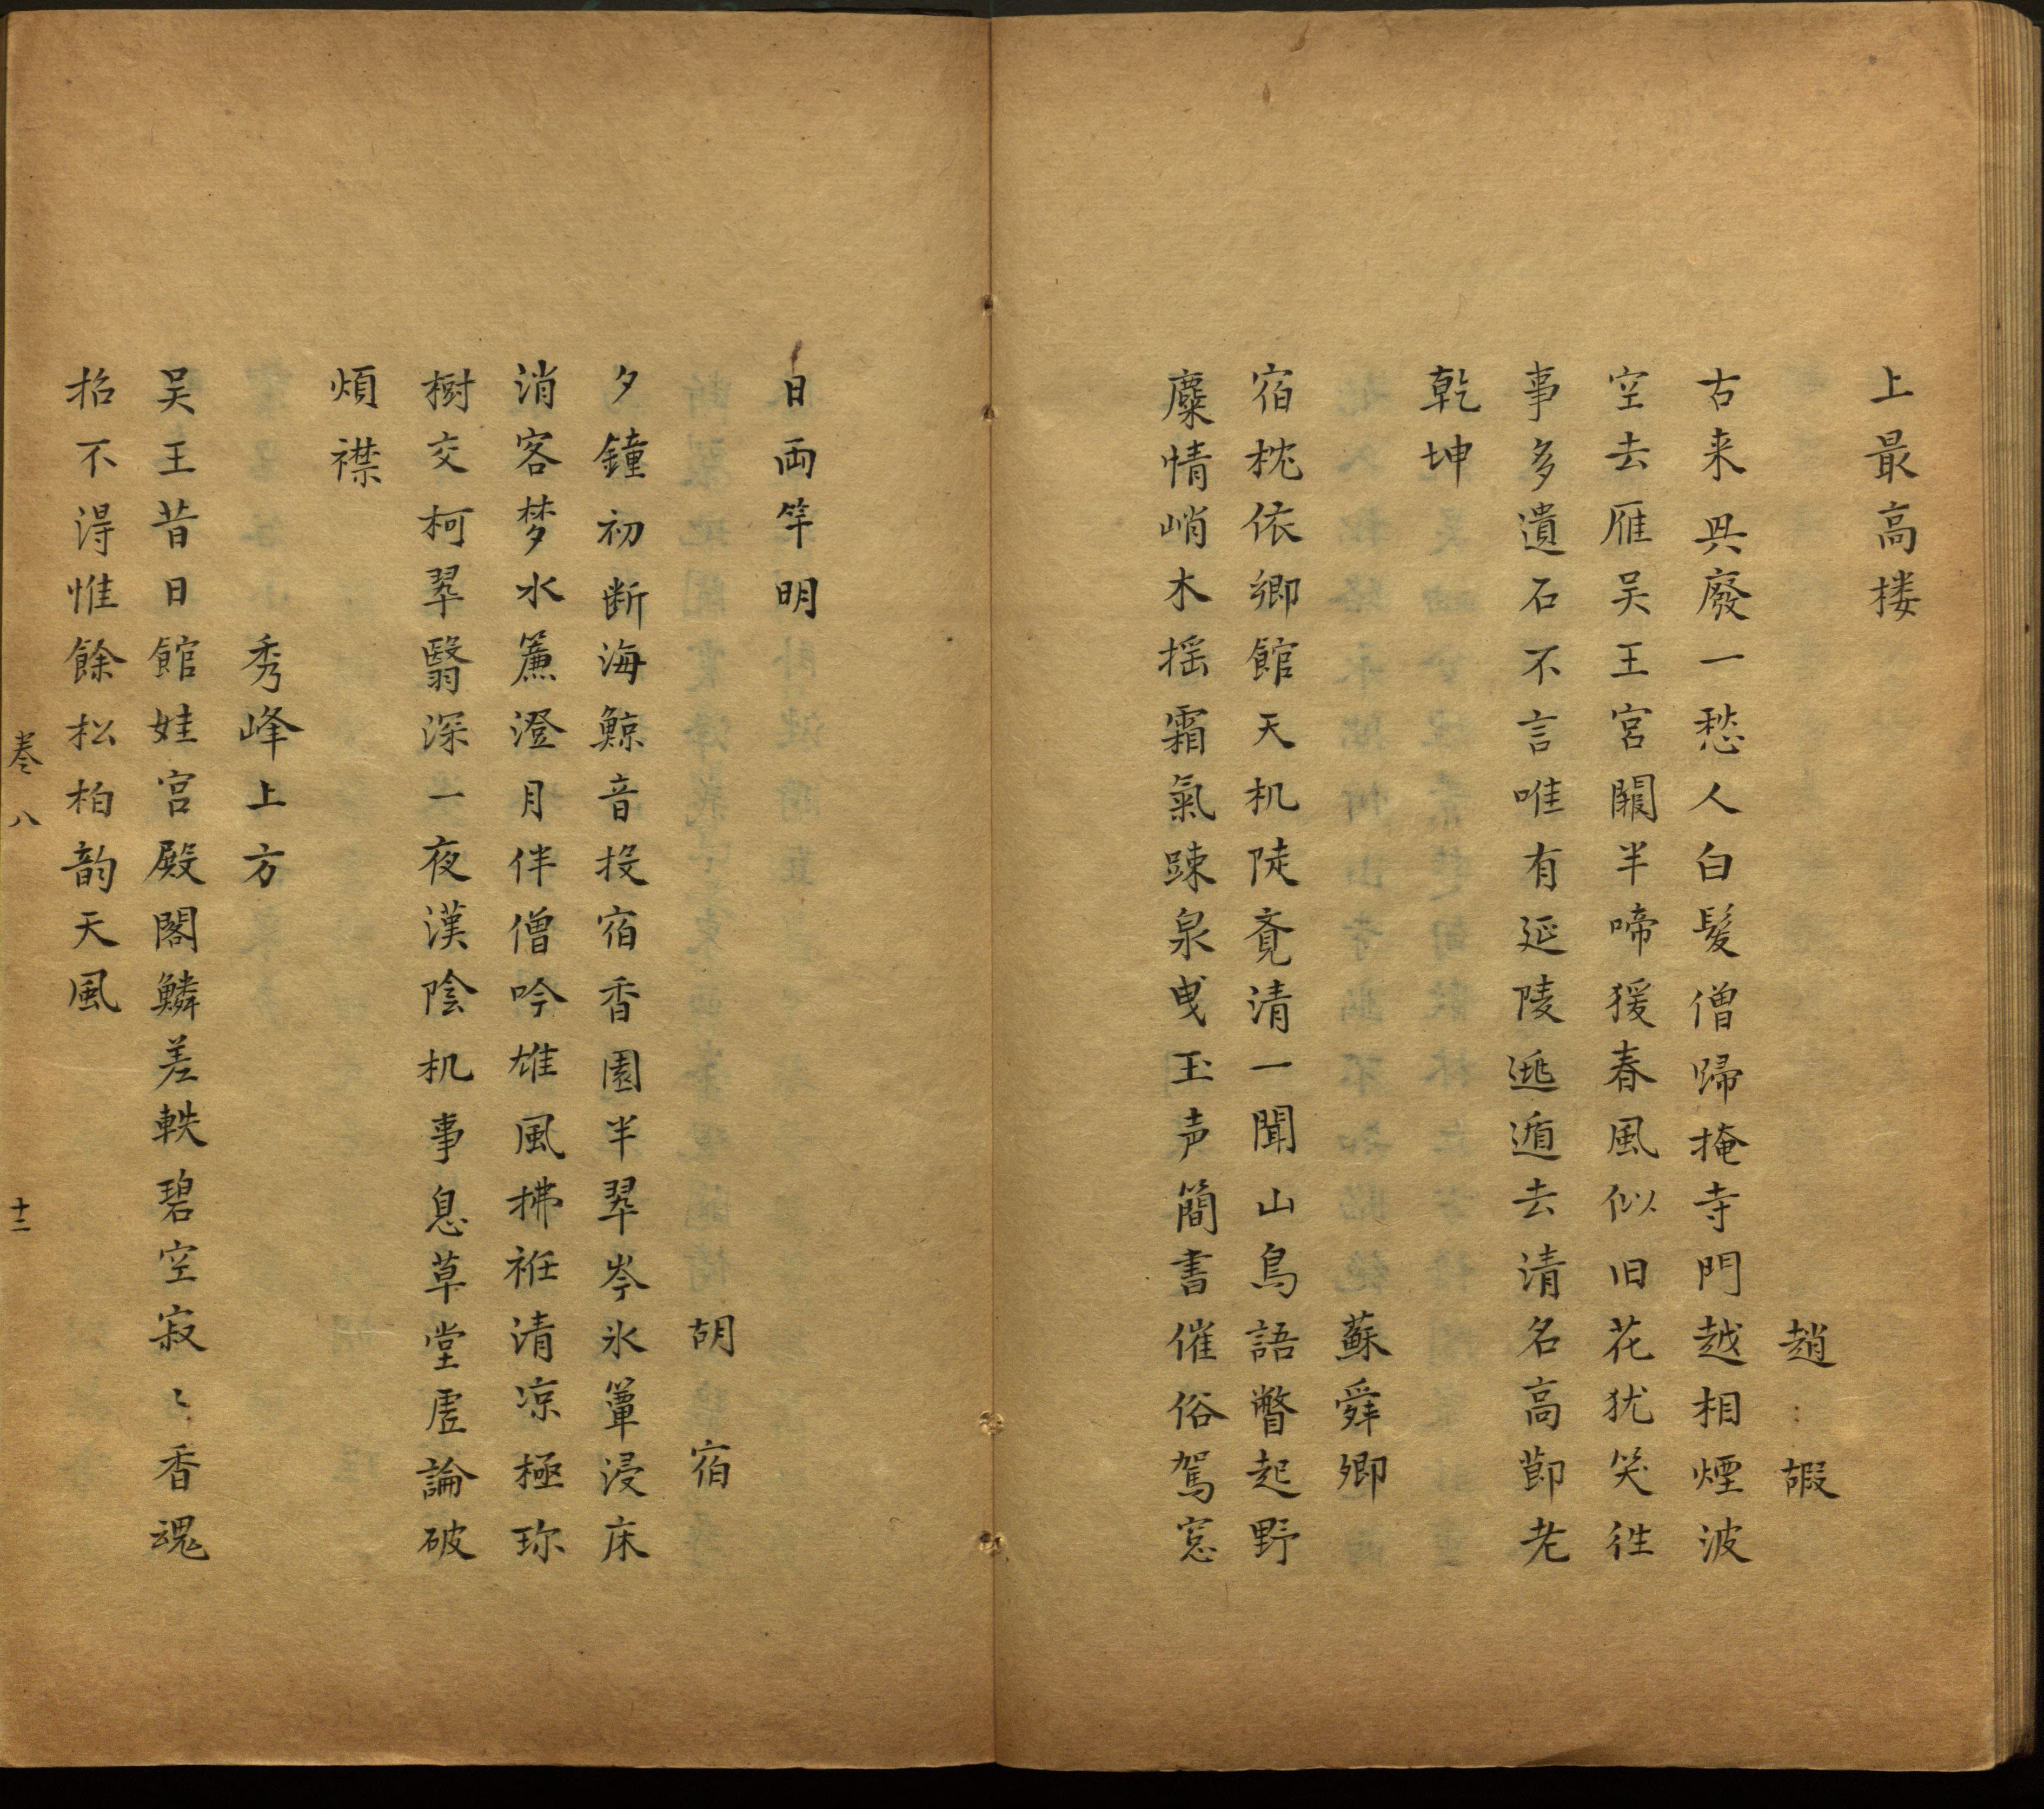 上最高楼
趙嘏
古来興廢一愁人白髪僧歸掩寺門越相煙波
空去雁吴王宮闕半啼猨春風似旧花犹笑徃
事多遺石不言唯有延陵逃遁去清名高節老
乾坤
蘇舜卿
宿枕依卿館天机陡覔清一聞山鳥語瞥起野
麋情峭木摇霜氣踈泉曵玉声簡書催俗駕窓
日両竿明
胡宿
夕鐘初断海鯨音投宿香園半翠岑氷簟浸床
消客梦水簾澄月伴僧吟雄風拂袵清凉極珎
樹交柯翠翳深一夜漢陰机事息草堂虗論破
煩襟
秀峰上方
吴王昔日館娃宫殿閣鱗差軼碧空寂〻香魂
招不淂惟餘松柏韵天風
巻八
十二